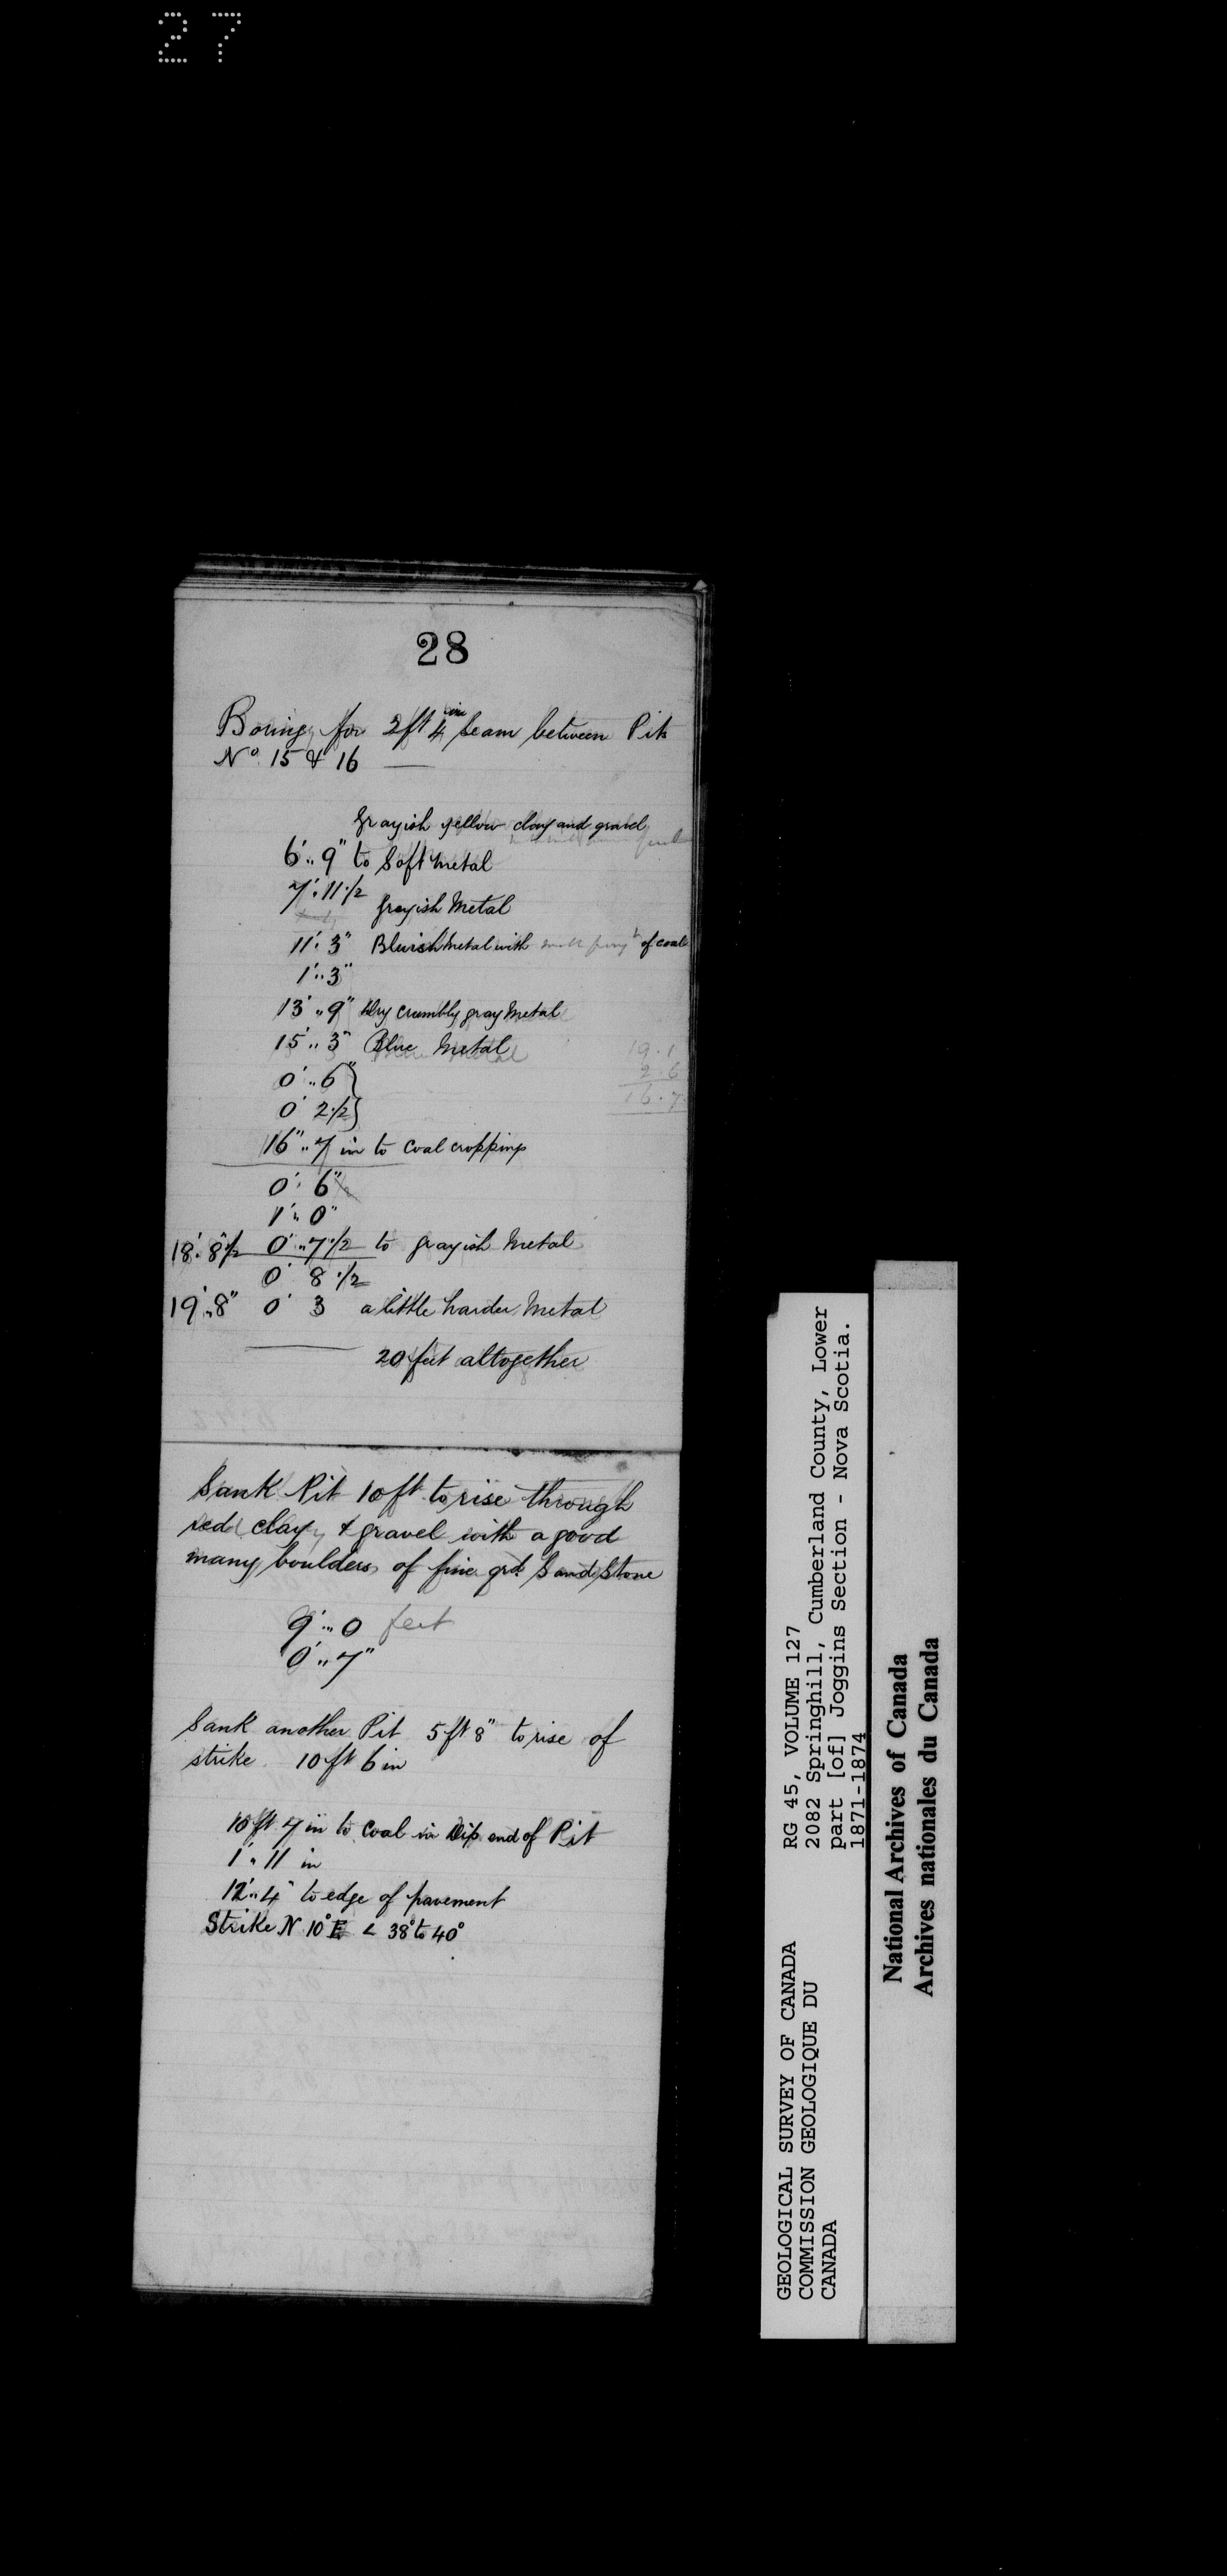 27
28
Boring for 2 ft 4 in Seam between Pits
No. 15 & 16 —
Grayish yellow clay and gravel
6'.. 9" to Soft metal
7'. 11 1/2 Grayish Metal
11'. 3" Bluish Metal with small of coal
1'.. 3"
13'.. 9" Dry crumbly gray Metal
15'.. 3" Blue Metal
19.1
0'.. 6"}
2.6
0' 2 1/2}
16.7
16".. 7 in to Coal cropping
0'. 6"
1'.. 0"
18'. 8" 1/2 0'.. 7 1/2 to grayish Metal
0' 8 1/2
19'.. 8" 0' 3 a little harder Metal
20 feet altogether
Sank Pit 10 ft to rise through
red clay & gravel with a good
many boulders of fine grd. Sand Stone
9'... 0 feet
0'.. 7"
Sank another Pit 5 ft 8" to rise of
strike 10 ft 6 in
10 ft 7 in to Coal in Dip end of Pit
1'.. 11 in
12'.. 4" to edge of pavement
Strike N 10° E < 38° to 40°
GEOLOGICAL SURVEY OF CANADA
COMMISSION GEOLOGIQUE DU
CANADA
RG 45, VOLUME 127
2082 Springhill, Cumberland County, Lower
part [of] Joggins Section - Nova Scotia.
1871-1874
National Archives of Canada
Archives nationales du Canada